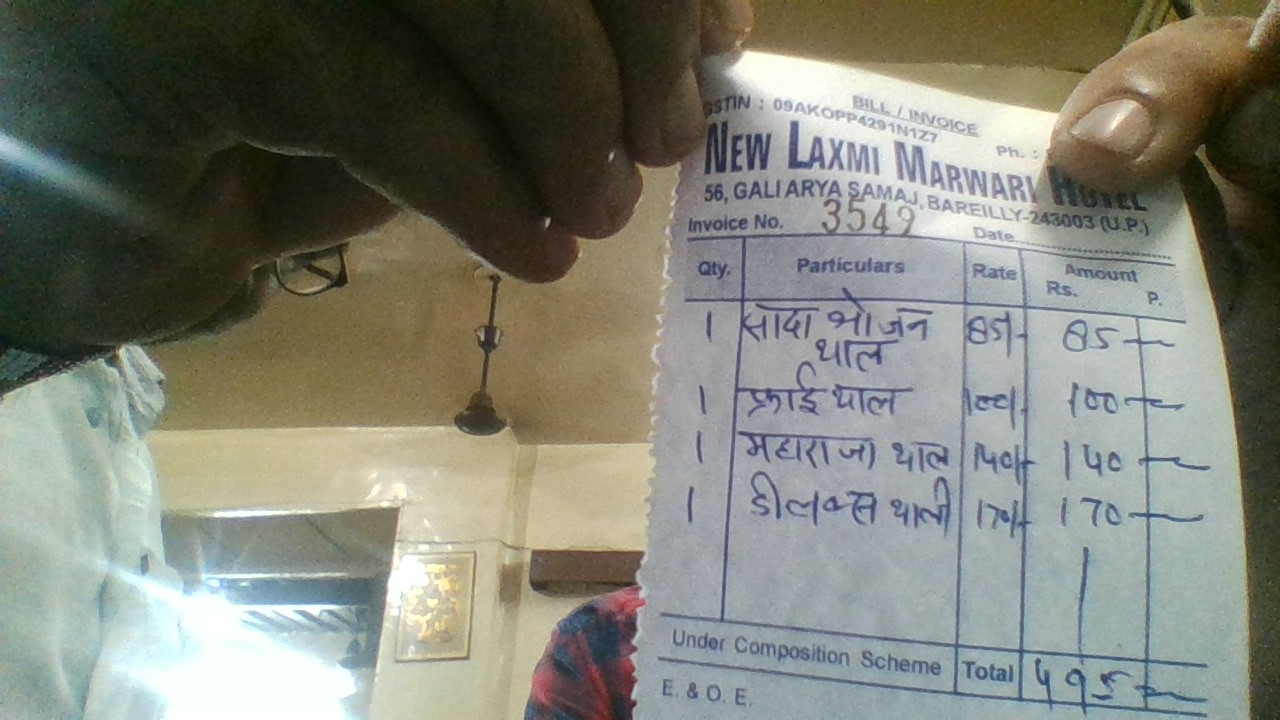 BILL / INVOICE
GSTIN : 09AKOPP4291N1Z7
Ph. :
NEW LAXMI MARWARI HOTEL
56, GALI ARYA SAMAJ, BAREILLY-243003 (U.P.)
Invoice No. 3549 Date
Qty. Particulars Rate Amount
Rs. P.
1 सादा भोजन 85/- 85 —
थाल
1 फ्राई थाल 100/- 100 —
1 महाराजा थाल 140/- 140 —
1 डीलक्स थाली 170/- 170 —
Under Composition Scheme Total 495 —
E. & O. E.